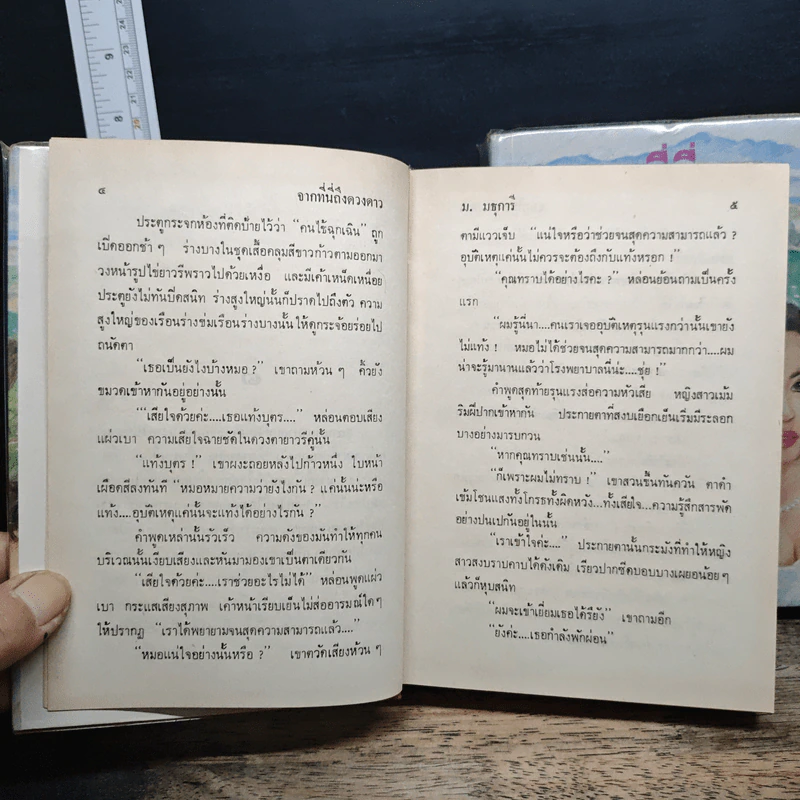 ๔
จากที่นี่ถึงดวงดาว
ประตูกระจกห้องที่ติดป้ายไว้ว่า “คนไข้ฉุกเฉิน” ถูก
เปิดออกช้า ๆ ร่างบางในชุดเสื้อคลุมสีขาวก้าวตามออกมา
วงหน้ารูปไข่ยาวรีพราวไปด้วยเหงื่อ และมีเค้าเหน็ดเหนื่อย
ประตูยังไม่ทันปิดสนิท ร่างสูงใหญ่นั้นก็ปราดไปถึงตัว ความ
สูงใหญ่ของเรือนร่างข่มเรือนร่างบางนั้นให้ดูกระจ้อยร่อยไป
ถนัดตา
“เธอเป็นยังไงบ้างหมอ ?” เขาถามห้วน ๆ คิ้วยัง
ขมวดเข้าหากันอยู่อย่างนั้น
““เสียใจด้วยค่ะ....เธอแท้งบุตร....” หล่อนตอบเสียง
แผ่วเบา ความเสียใจฉายชัดในดวงตายาวรีคู่นั้น
“แท้งบุตร !” เขาผงะถอยหลังไปก้าวหนึ่ง ใบหน้า
เผือดสีลงทันที “หมอหมายความว่ายังไงกัน ? แค่นั้นน่ะหรือ
แท้ง....อุบัติเหตุแค่นั้นจะแท้งได้อย่างไรกัน ?”
คำพูดเหล่านั้นรัวเร็ว ความดังของมันทำให้ทุกคน
บริเวณนั้นเงียบเสียงและหันมามองเขาเป็นตาเดียวกัน
“เสียใจด้วยค่ะ....เราช่วยอะไรไม่ได้” หล่อนพูดแผ่ว
เบา กระแสเสียงสุภาพ เค้าหน้าเรียบเย็นไม่ส่ออารมณ์ใดๆ
ให้ปรากฏ “เราได้พยายามจนสุดความสามารถแล้ว....”
“หมอแน่ใจอย่างนั้นหรือ ?” เขาตวัดเสียงห้วน ๆ
ม. มธุการี
๕
ตามีแววเจ็บ “แน่ใจหรือว่าช่วยจนสุดความสามารถแล้ว ?
อุบัติเหตุแค่นั้นไม่ควรจะต้องถึงกับแท้งหรอก !”
“คุณทราบได้อย่างไรคะ ?” หล่อนย้อนถามเป็นครั้ง
แรก
“ผมรู้นี่นา....คนเราเจออุบัติเหตุรุนแรงกว่านั้นเขายัง
ไม่แท้ง ! หมอไม่ได้ช่วยจนสุดความสามารถมากกว่า....ผม
น่าจะรู้มานานแล้วว่าโรงพยาบาลนี่น่ะ....ซุ่ย !”
คำพูดสุดท้ายรุนแรงส่อความหัวเสีย หญิงสาวเม้ม
ริมฝีปากเข้าหากัน ประกายตาที่สงบเยือกเย็นเริ่มมีระลอก
บางอย่างมารบกวน
“หากคุณทราบเช่นนั้น....”
“ก็เพราะผมไม่ทราบ !” เขาสวนขึ้นทันควัน ตาดำ
เข้มโชนแสงทั้งโกรธทั้งผิดหวัง...ทั้งเสียใจ...ความรู้สึกสารพัด
อย่างปนเปกันอยู่ในนั้น
“เราเข้าใจค่ะ....” ประกายตานั้นกระมังที่ทำให้หญิง
สาวสงบราบคาบได้ดังเดิม เรียวปากซีดบอบบางเผยอน้อยๆ
แล้วก็หุบสนิท
“ผมจะเข้าเยี่ยมเธอได้รึยัง” เขาถามอีก
“ยังค่ะ....เธอกำลังพักผ่อน”